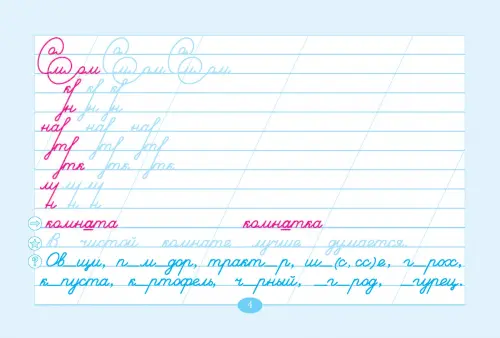 а
м ом м ом м ом
к к к
н н н
наf наf наf
т т т
тк тк тк
му му му
н н н
комната комнатка
В чистой комнате лучше думается.
Ов_щи, п_м_дор, тракт_р, ш_(с, сс)е, г_рох,
к_пуста, к_ртофель, ч_рный, _г_род, _гурец.
4